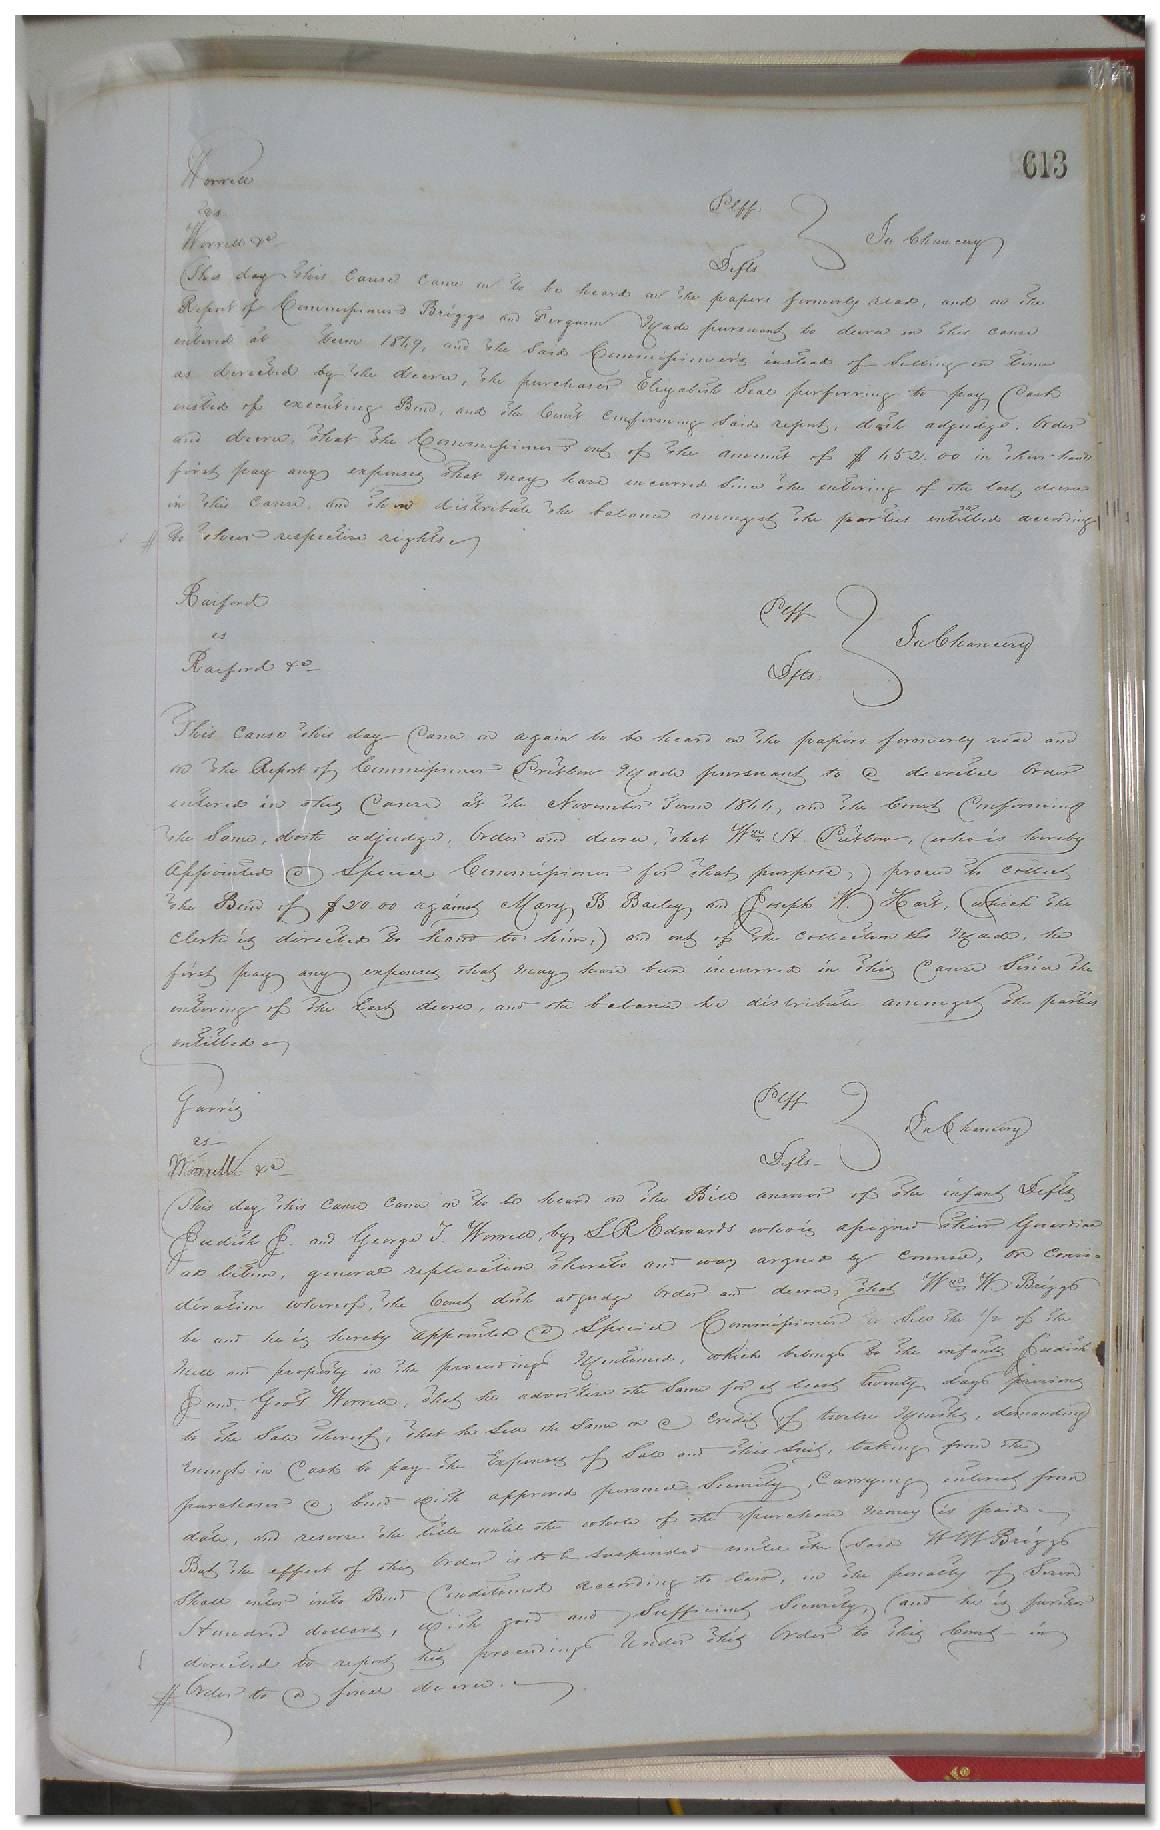 613
Worrell
vs
Worrell &c
Plff.
Defts
In Chancery
This day this cause came on to be heard on the papers formerly read, and on the
Report of Commissioners Briggs and Ferguson made pursuant to decree in this cause
entered at Term 1849, and the said Commissioners instead of selling on time
as directed by the decree, the purchaser Elizabeth Seal perferring to pay Cash
insted of executing Bond, and the Court confirming said report, doth adjudge, Order
and decree, that the Commissioners out of the amount of $ 152.00 in their hands
first pay any expenses that may have incurred since the entering of the last decree
in this cause, and then distribute the balance amongst the parties intitled according
to their respective rights
Raiford
vs
Raiford &c
Plff
Defts.
In Chancery
This cause this day came on again to be heard on the papers formerly read and
on the Report of Commissioner Pretlow made pursuant to a decretal Order
entered in this Cause at the November Term 1844, and the Court confirming
the same, doth adjudge, Order and decree, that Wm H. Pretlow, (who is hereby
Appointed a Special Commissioner for that purpose,) proceed to collect
the Bond of $20.00 against Mary B Bailey and Joseph W. Hart, (which the
clerk is directed to hand to him,) and out of the collection so made, he
first pay any expenses that may have been incurred in this Cause since the
entering of the last decree, and the balance he distribute amongst the parties
intitled
Garris
vs
Worrell &c
Plff
Defts
In Chancery
This day this cause came on to be heard on the Bill answer of the infant Defts
Judith J. and George T. Worrell, by L R Edwards who is assigned their Guardian
ad litem, general replication thereto and was argued by counsel, on consi-
deration whereof, the Court doth adjudge order and decree, that Wm W. Briggs
be and he is hereby appointed a Special Commissioner to sell the 1/2 of the
mill and property in the proceedings mentioned, which belongs to the infants Judith
J and, Geo T Worrell, that he advertise the same for at least twenty days previous
to the Sale thereof, that he sell the same on a credit of twelve months, demanding
enough in Cash to pay the Expenses of Sale and this suit, taking from the
purchaser a bond with approved personal Security, Carrying interest from
date, and reserve the title until the whole of the purchase money is paid
But the effect of this Order is to be suspended until the said W W Briggs
shall enter into Bond Conditioned according to law, in the penalty of Seven
Hundred dollars, with good and Sufficient Security, (and he is further
directed to report his proceedings under this Order to this Court in
Order to a final decree.